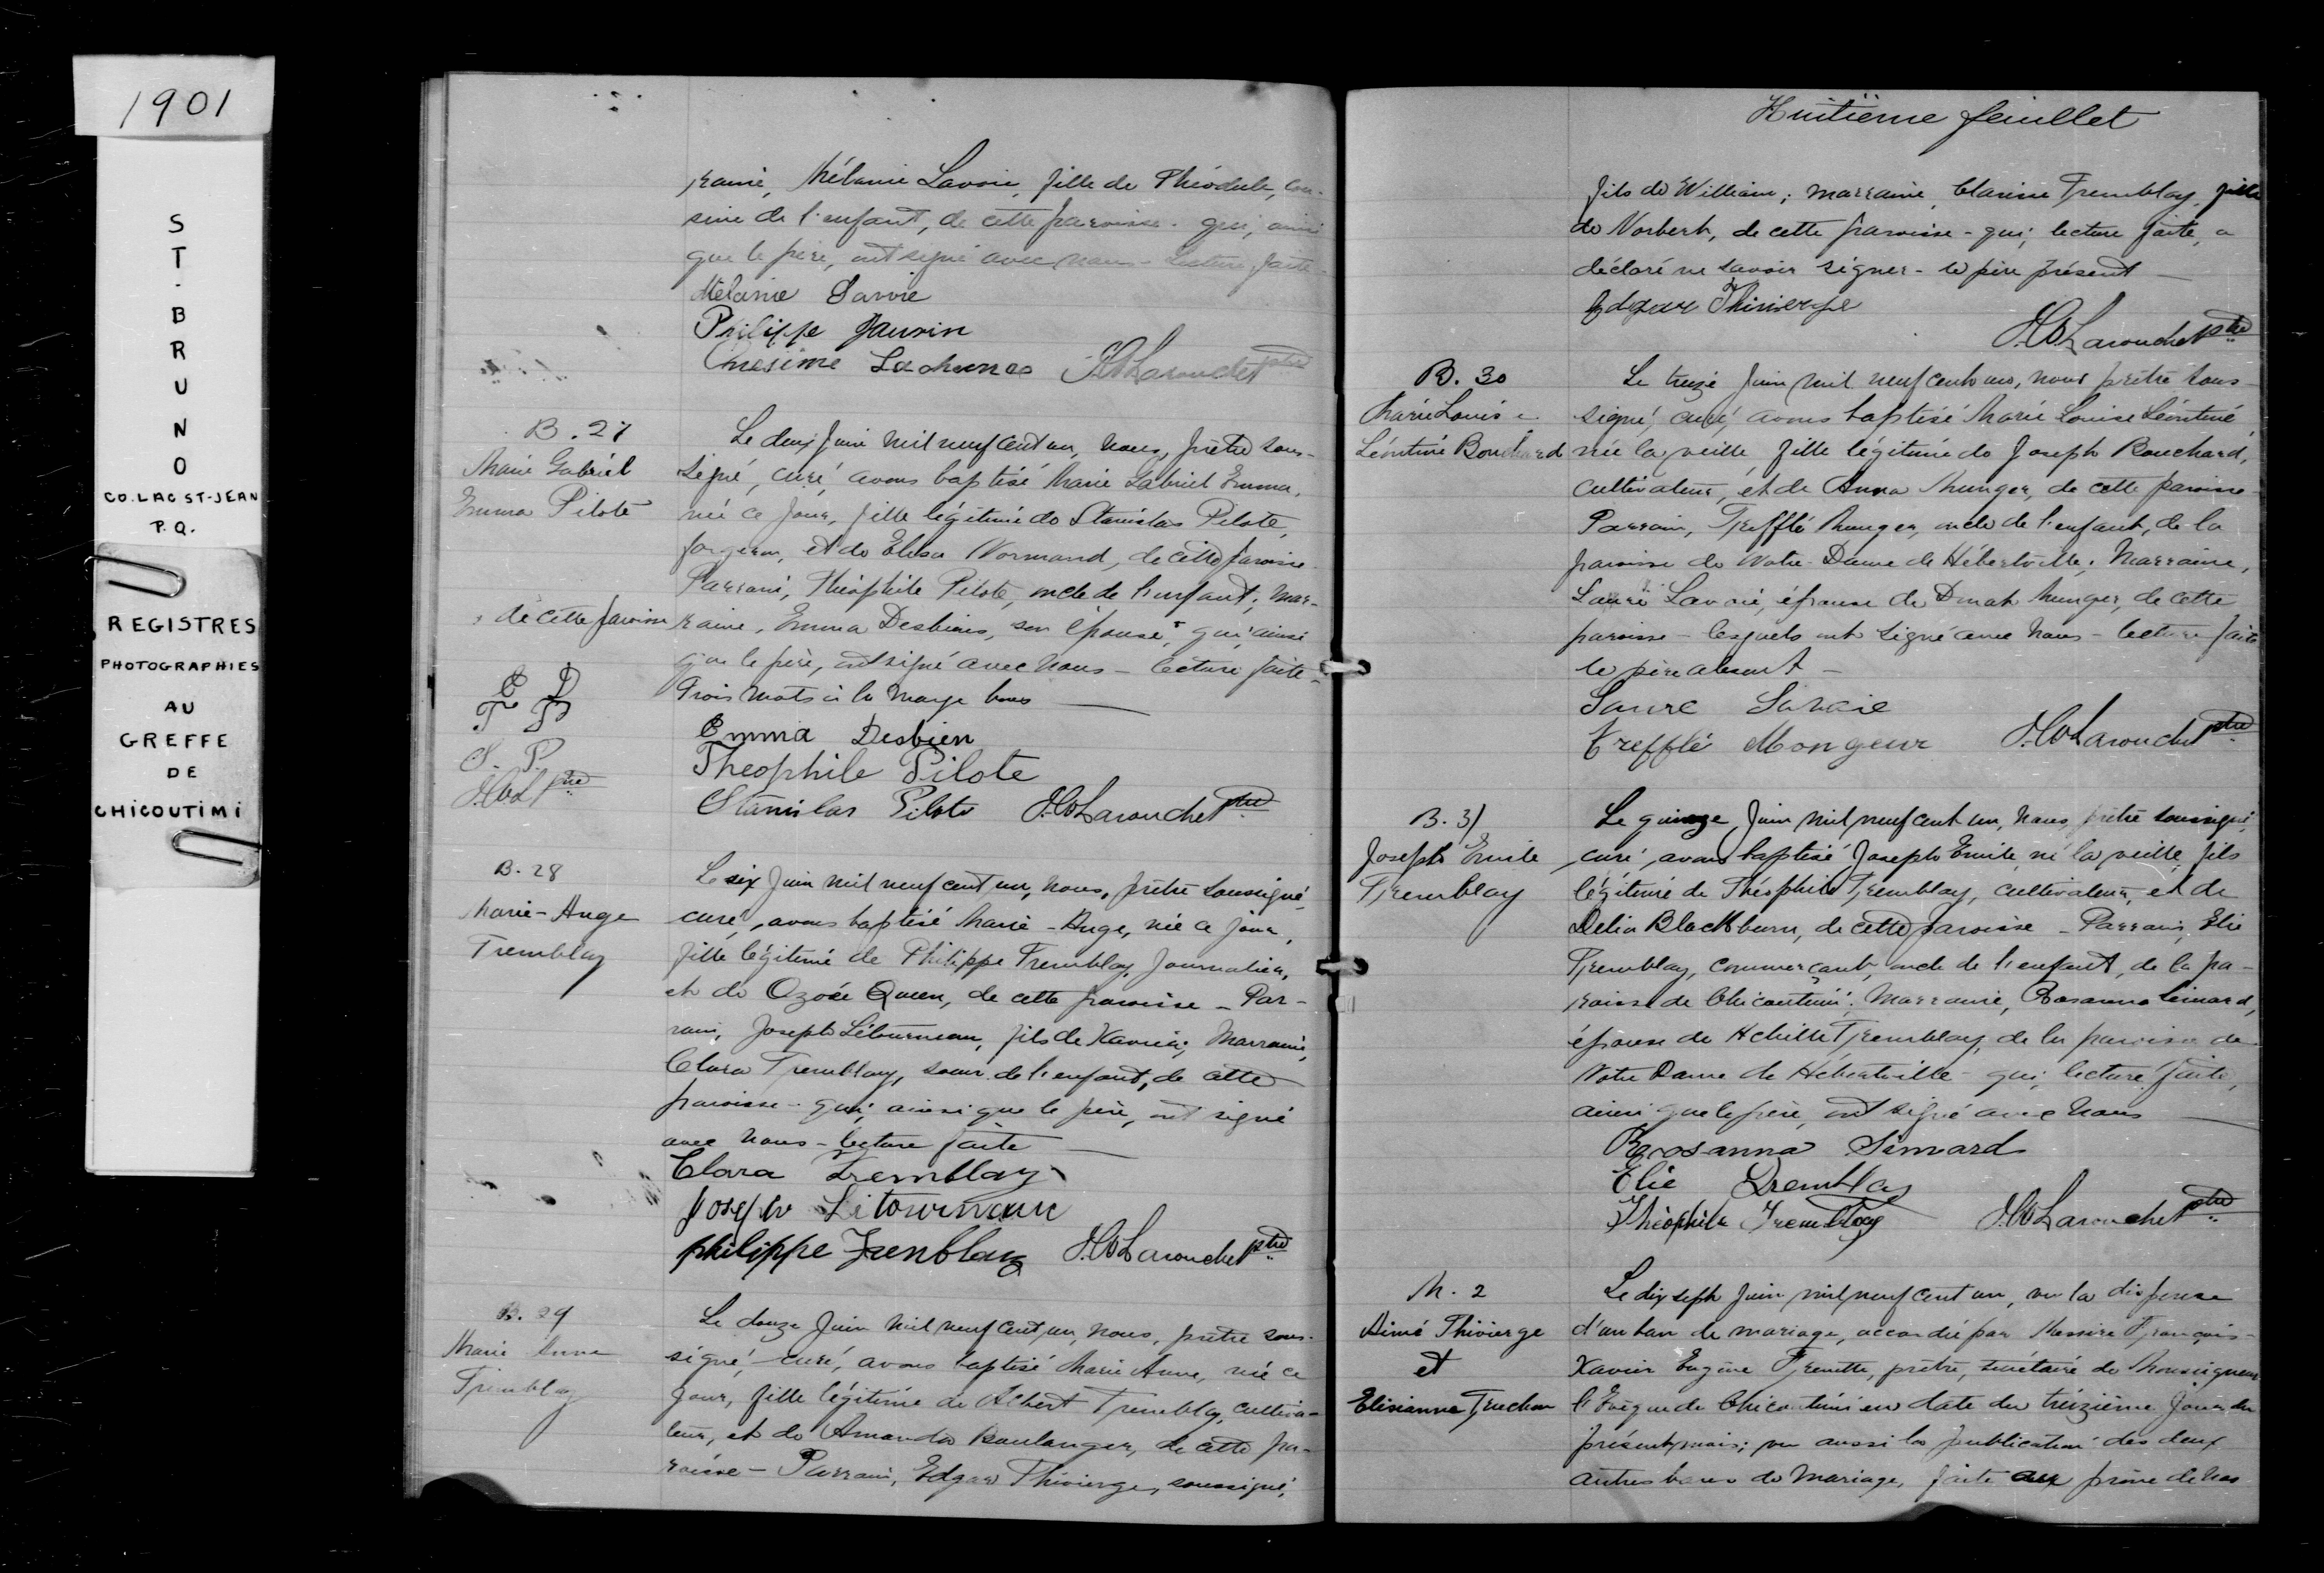 1901
ST-BRUNO
CO. LAC ST-JEAN
P.Q.
REGISTRES
PHOTOGRAPHIES
AU
GREFFE
DE
CHICOUTIMI
raine, Mélanie Lavoie, fille de Théodule, cou-
sine de l'enfant, de cette paroisse - qui, ainsi
que le père, ont signé avec nous - Lecture faite -
Mélanie Lavoie
Philippe
Onésime
J. Larouche Ptre
B. 27
Marie Gabriel
Emma Pilote
Le deux Juin mil neuf cent un, nous, prêtre sous-
signé, curé, avons baptisé Marie Gabriel Emma,
née ce jour, fille légitime de Stanislas Pilote,
forgeron, et de Elisa Normand, de cette paroisse.
Parrain, Théophile Pilote, oncle de l'enfant; Mar-
raine, Emma Desbiens, son épouse, + qui, ainsi
+ de cette paroisse
que le père, ont signé avec nous - lecture faite -
Trois mots à la marge bons
E D
T P
S. P.
Ptre
Emma Desbien
Theophile Pilote
Stanislas Pilote J. Larouche Ptre
B. 28
Marie-Ange
Tremblay
Le six Juin mil neuf cent un, nous, prêtre soussigné,
curé, avons baptisé Marie-Ange, née ce jour,
fille légitime de Philippe Tremblay, journalier,
et de Ozoée Queen, de cette paroisse - Par-
rain, Joseph Létourneau, fils de Xavier; Marraine,
Clara Tremblay, soeur de l'enfant, de cette
paroisse - qui, ainsi que le père, ont signé
avec nous - lecture faite
Clara Tremblay
Joseph Litourneau
philippe Trenblay J. Larouche Ptre
B. 29
Marie Anne
Tremblay
Le douze Juin mil neuf cent un, nous, prêtre sous-
signé, curé, avons baptisé Marie Anne, née ce
jour, fille légitime de Albert Tremblay, cultiva-
teur, et de Amanda Boulanger, de cette pa-
roisse - Parrain, Edgar Thivierge, soussigné,
Huitième feuillet
fils de William; marraine, Clarisse Tremblay, fille
de Norbert, de cette paroisse - qui, lecture faite, a
déclaré ne savoir signer - le père présent -
Edgar Thivierge
J. Larouche Ptre
B. 30
Marie Louise
Léontine Bouchard
Le treize Juin mil neuf cent un, nous prêtre sous-
signé, curé, avons baptisé Marie Louise Léontine,
née la veille, fille légitime de Joseph Bouchard,
cultivateur, et de Anna Munger, de cette paroisse.
Parrain, Trefflé Munger, oncle de l'enfant, de la
paroisse de Notre-Dame de Hébertville; Marraine,
Laure Lavoie, épouse de Munger, de cette
paroisse - lesquels ont signé avec nous - lecture faite
le père absent -
Laure Lavoie
Trefflé Mongeur J. Larouche Ptre
B. 31
Joseph Emile
Tremblay
Le quinze Juin mil neuf cent un, nous, prêtre soussigné,
curé, avons baptisé Joseph Emile, né la veille, fils
légitime de Théophile Tremblay, cultivateur, et de
Delia Blackburn, de cette paroisse - Parrain, Elie
Tremblay, commerçant, oncle de l'enfant, de la pa-
roisse de Chicoutimi; Marraine, Rosanna Simard,
épouse de Achille Tremblay, de la paroisse de
Notre Dame de Hébertville - qui, lecture faite,
ainsi que le père, ont signé avec nous
Rosanna Simard
Elie Tremblay
Théophile Tremblay J. Larouche Ptre
M. 2
Aimé Thivierge
et
Elisianne Truchon
Le dix sept Juin mil neuf cent un, vu la dispense
d'un ban de mariage, accordée par Messire François-
Xavier Eugène Frenette, prêtre, secrétaire de Monseigneur
l'Evêque de Chicoutimi en date du treizième jour du
présent mois; vu aussi la publication des deux
autres bans de mariage, faite aux prône de nos